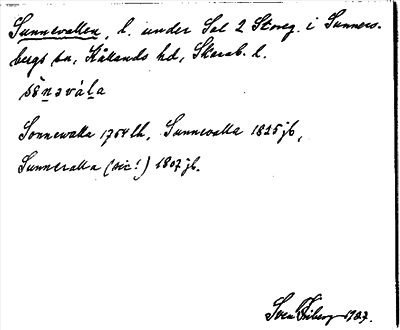 Sunnevallen, l. under Sal 2 Storeg. i Sunners-
bergs sn, Kållands hd, Skarab. l.
sönəvála
Sonnewalla 1764 lh, Sunnevalla 1825 jb,
Sunneralla (sic!) 1807 jb.
Sven 1927.